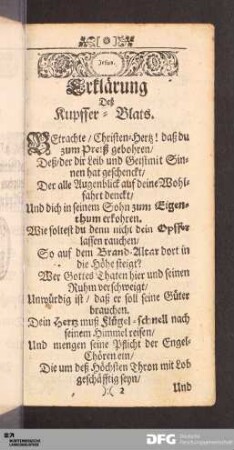 Jesus.
Erklärung
Deß
Kupffer-Blats.
BEtrachte/ Christen-Hertz! daß du
zum Preiß gebohren/
Deß/der dir Leib und Geist mit Sin-
nen hat geschenckt/
Der alle Augenblick auf deine Wohl-
fahrt denckt/
Und dich in seinem Sohn zum Eigen-
thum erkohren.
Wie soltest du denn nicht dein Opffer
lassen rauchen/
So auf dem Brand-Altar dort in
die Höhe steigt?
Wer Gottes Thaten hier und seinen
Ruhm verschweigt/
Unwürdig ist/ daß er soll seine Güter
brauchen.
Dein Hertz muß Flügel-schnell nach
seinem Himmel reisen/
Und mengen seine Pflicht der Engel-
Chören ein/
Die um deß Höchsten Thron mit Lob
geschäfftig seyn/
):( 2 Und
DFG Deutsche
Forschungsgemeinschaft